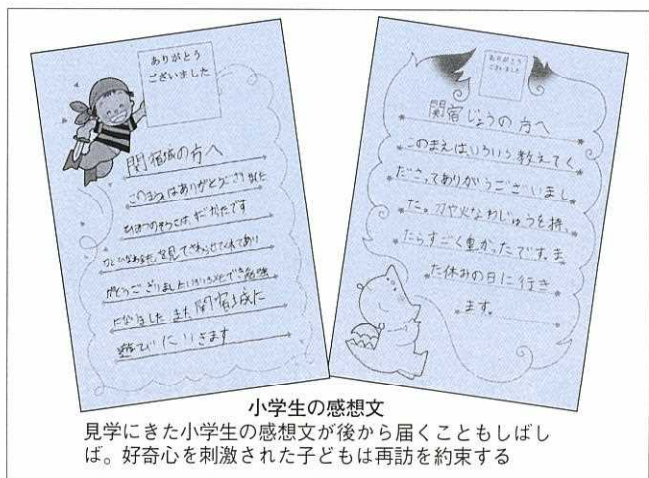 ありがとう
ございました
関宿城の方へ
このまえはありがとうござい
を見てさわらせてくれてあり
がとうございました
になりました また関宿城に
遊びにいきます
ありがとう
ございました
関宿じょうの方へ
このまえはいろいろ教えてく
ださってありがうございまし
た。刀や火なわじゅうを持っ
たらすごく重かったです。ま
た休みの日に行き
ます。
小学生の感想文
見学にきた小学生の感想文が後から届くこともしばし
ば。好奇心を刺激された子どもは再訪を約束する